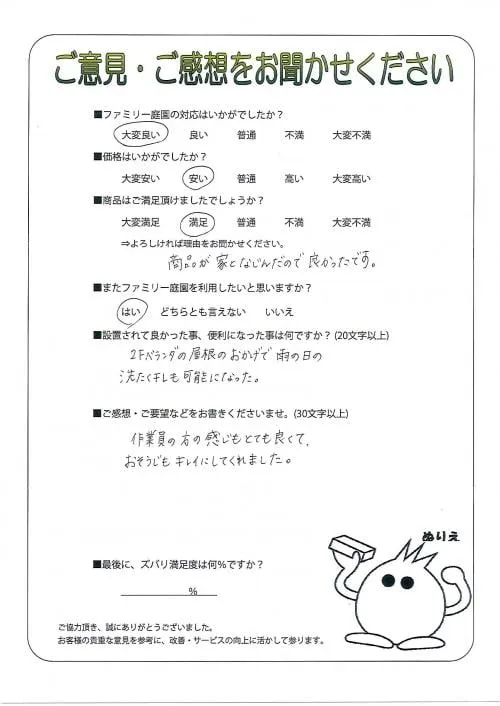 ご意見・ご感想をお聞かせください
■ファミリー庭園の対応はいかがでしたか？
大変良い 良い 普通 不満 大変不満
■価格はいかがでしたか？
大変安い 安い 普通 高い 大変高い
■商品はご満足頂けましたでしょうか？
大変満足 満足 普通 不満 大変不満
⇒よろしければ理由をお聞かせください。
商品が家となじんだので良かったです。
■またファミリー庭園を利用したいと思いますか？
はい どちらとも言えない いいえ
■設置されて良かった事、便利になった事は何ですか？(20文字以上)
2Fベランダの屋根のおかげで雨の日の
洗たくキレも可能になった。
■ご感想・ご要望などをお書きくださいませ。(30文字以上)
作業員の方の感じもとても良くて、
おそうじもキレイにしてくれました。
ぬりえ
■最後に、ズバリ満足度は何％ですか？
％
ご協力頂き、誠にありがとうございました。
お客様の貴重な意見を参考に、改善・サービスの向上に活かして参ります。